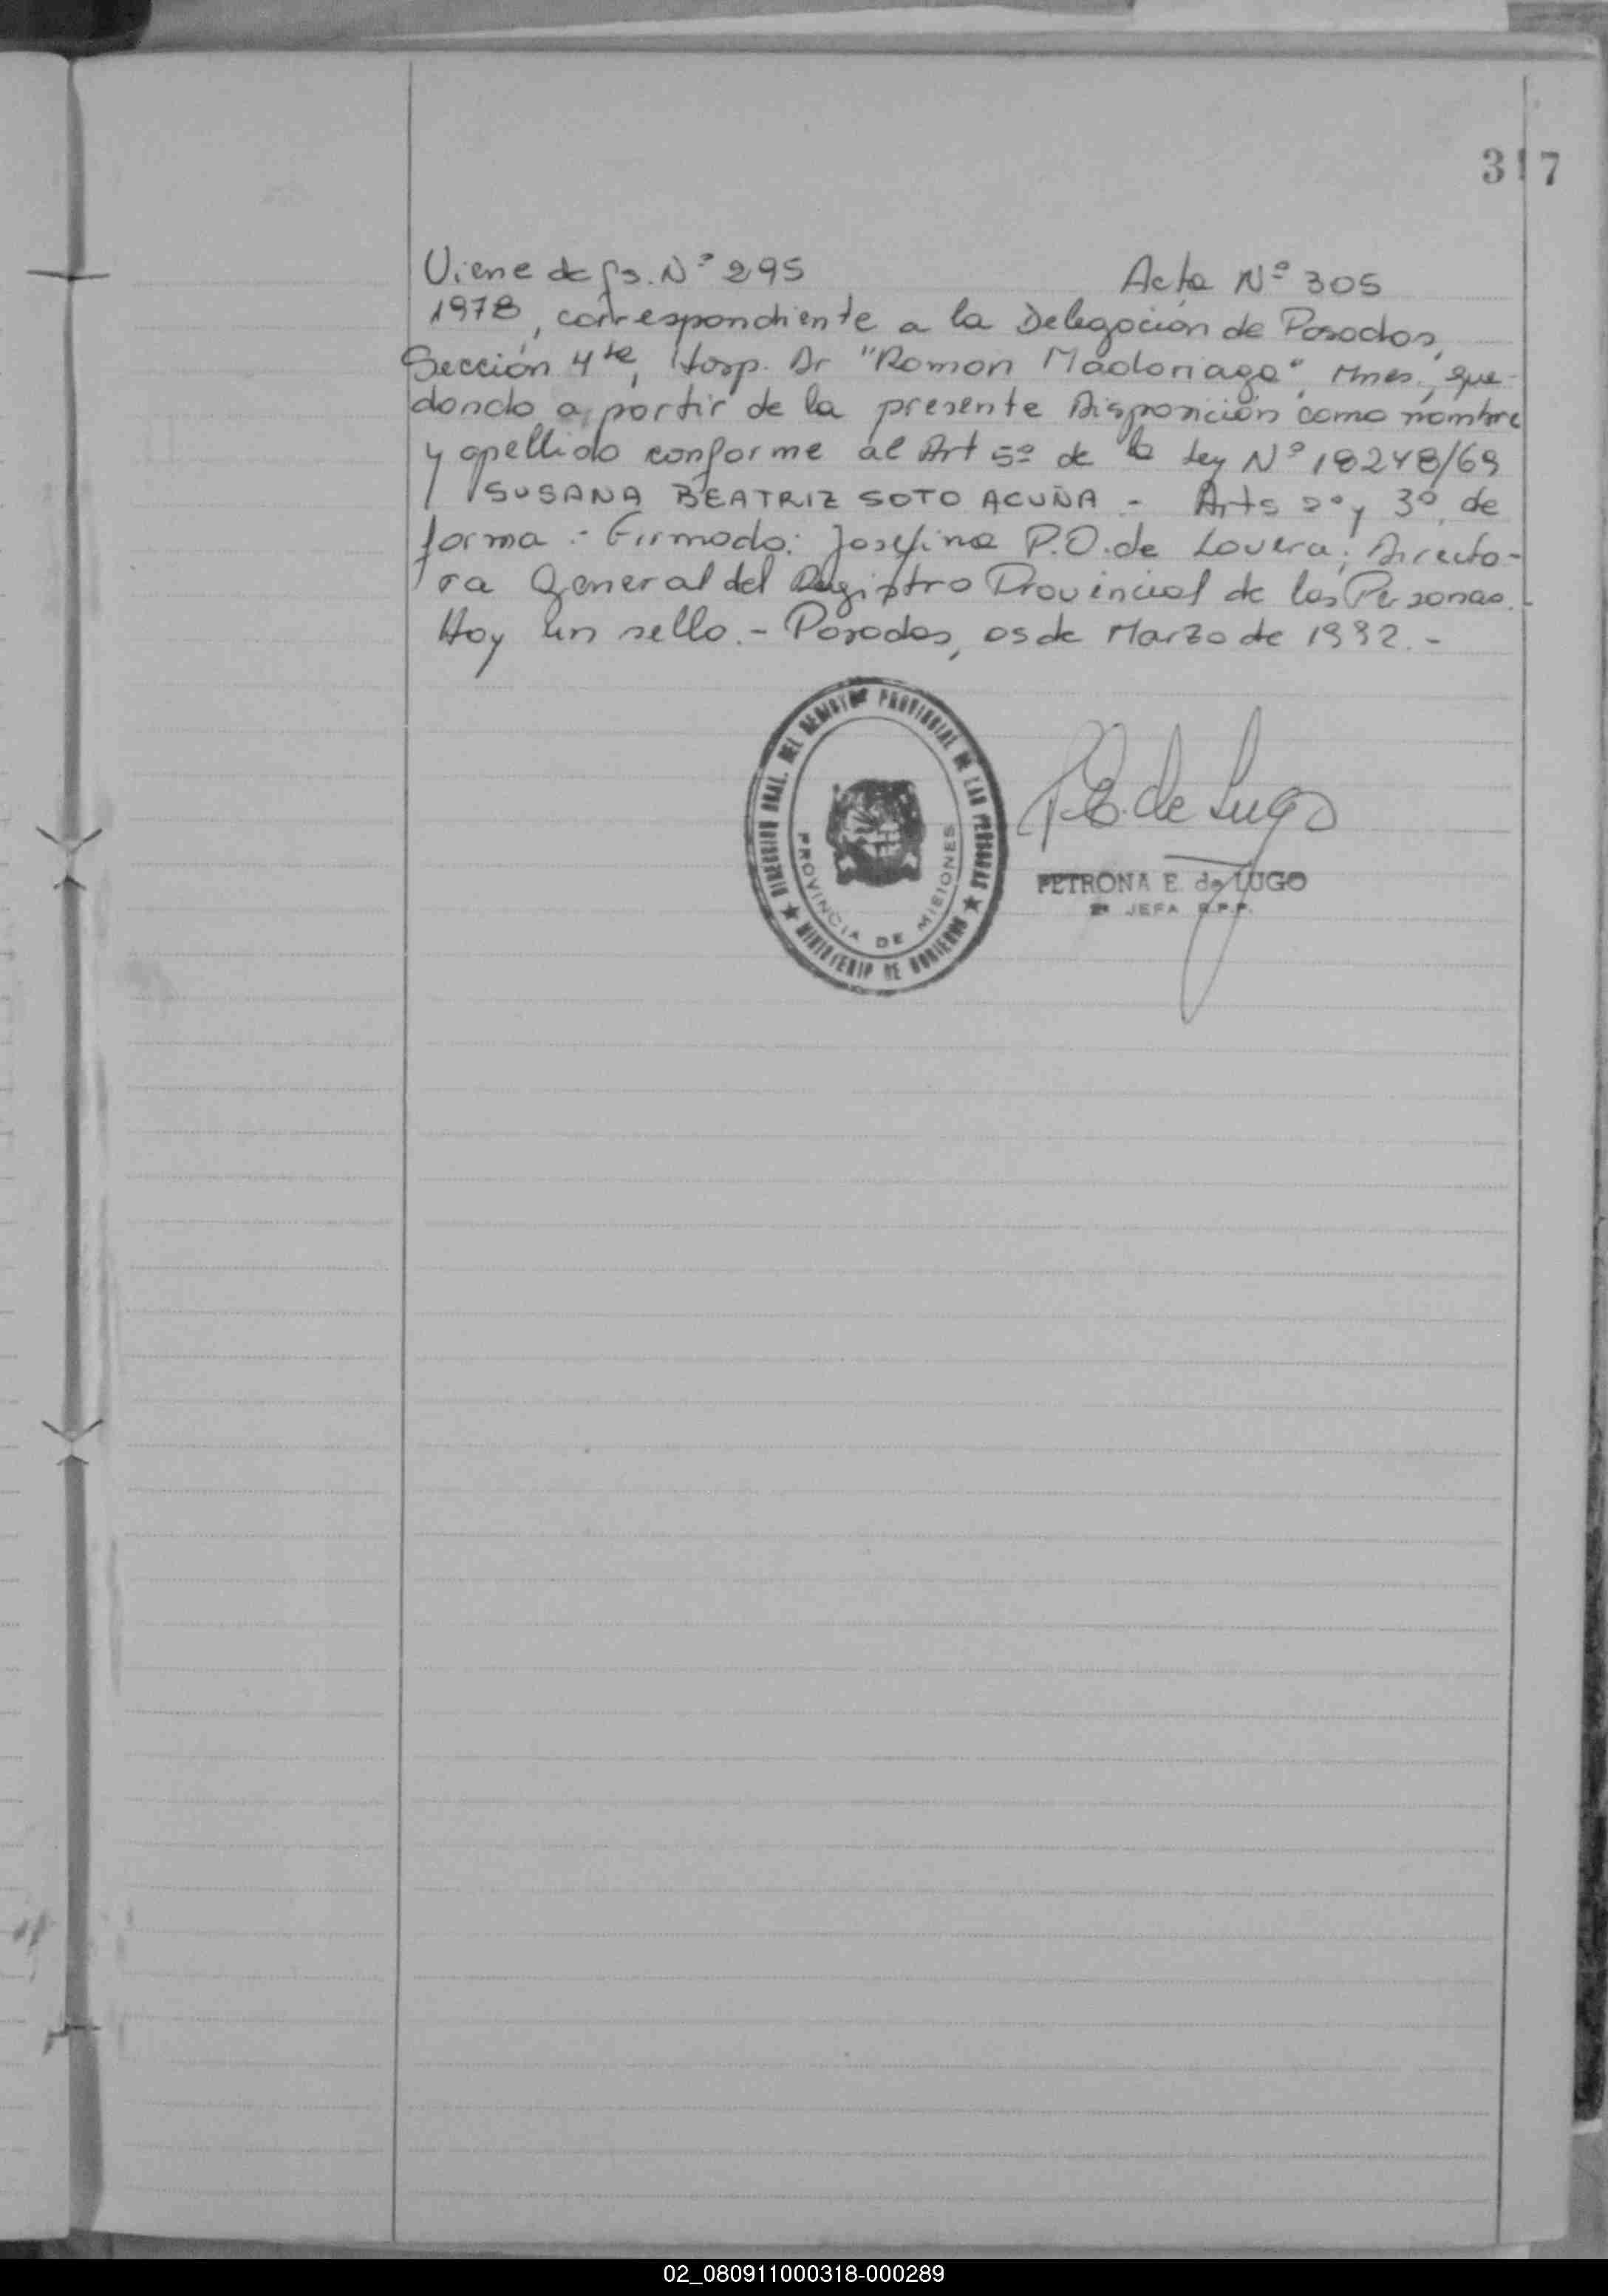 317
Viene de fs. Nº 295 Acta Nº 305
1978, correspondiente a la Delegación de Posadas,
Sección 4ta, Hosp. Dr "Ramon Madariaga", Mnes., que-
dando a partir de la presente Disposición como nombre
y apellido conforme al Art 5º de la Ley Nº 18248/69
SUSANA BEATRIZ SOTO ACUÑA.- Arts 2º y 3º, de
forma.- Firmado: Josefina P.O. de Lovera; Directo-
ra General del Registro Provincial de las Personas.
Hay un sello.- Posadas, 05 de Marzo de 1992.-
DIRECCION GRAL. DEL REGISTRO PROVINCIAL DE LAS PERSONAS
PROVINCIA DE MISIONES
MINISTERIO DE GOBIERNO
P.E. de Lugo
PETRONA E. de LUGO
2ª JEFA R.P.P.
02_080911000318-000289